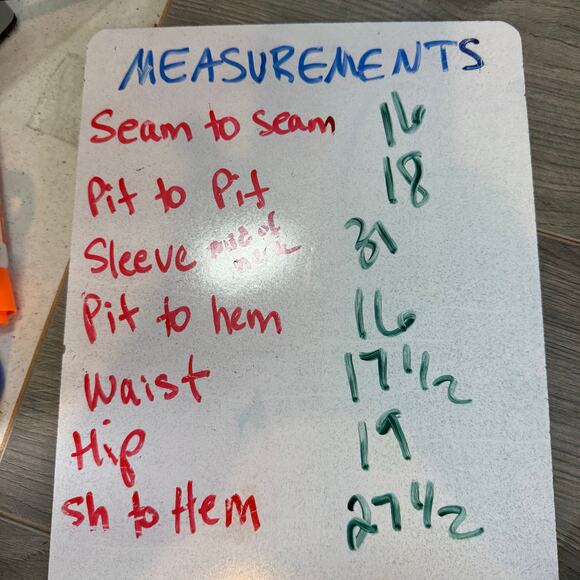 MEASUREMENTS
Seam to seam 16
Pit to Pit 18
Sleeve mid of neck 31
Pit to hem 16
Waist 17 1/2
Hip 19
Sh to Hem 27 1/2